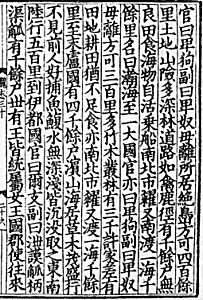 官曰卑狗副曰卑奴母離所居絶島方可四百餘
里土地山險多深林道路如禽鹿徑有千餘戶無
良田食海物自活乗船南北市糴又南渡一海千
餘里名曰瀚海至一大國官亦曰卑狗副曰卑奴
母離方可三百里多竹木叢林有三千許家差有
田地耕田猶不足食亦南北市糴又渡一海千餘
里至末盧國有四千餘戶濱山海居草木茂盛行
不見前人好捕魚鰒水無深淺皆沈没取之東南
陸行五百里到伊都國官曰爾支副曰泄謨觚柄
渠觚有千餘戶世有王皆統屬女王國郡使往來